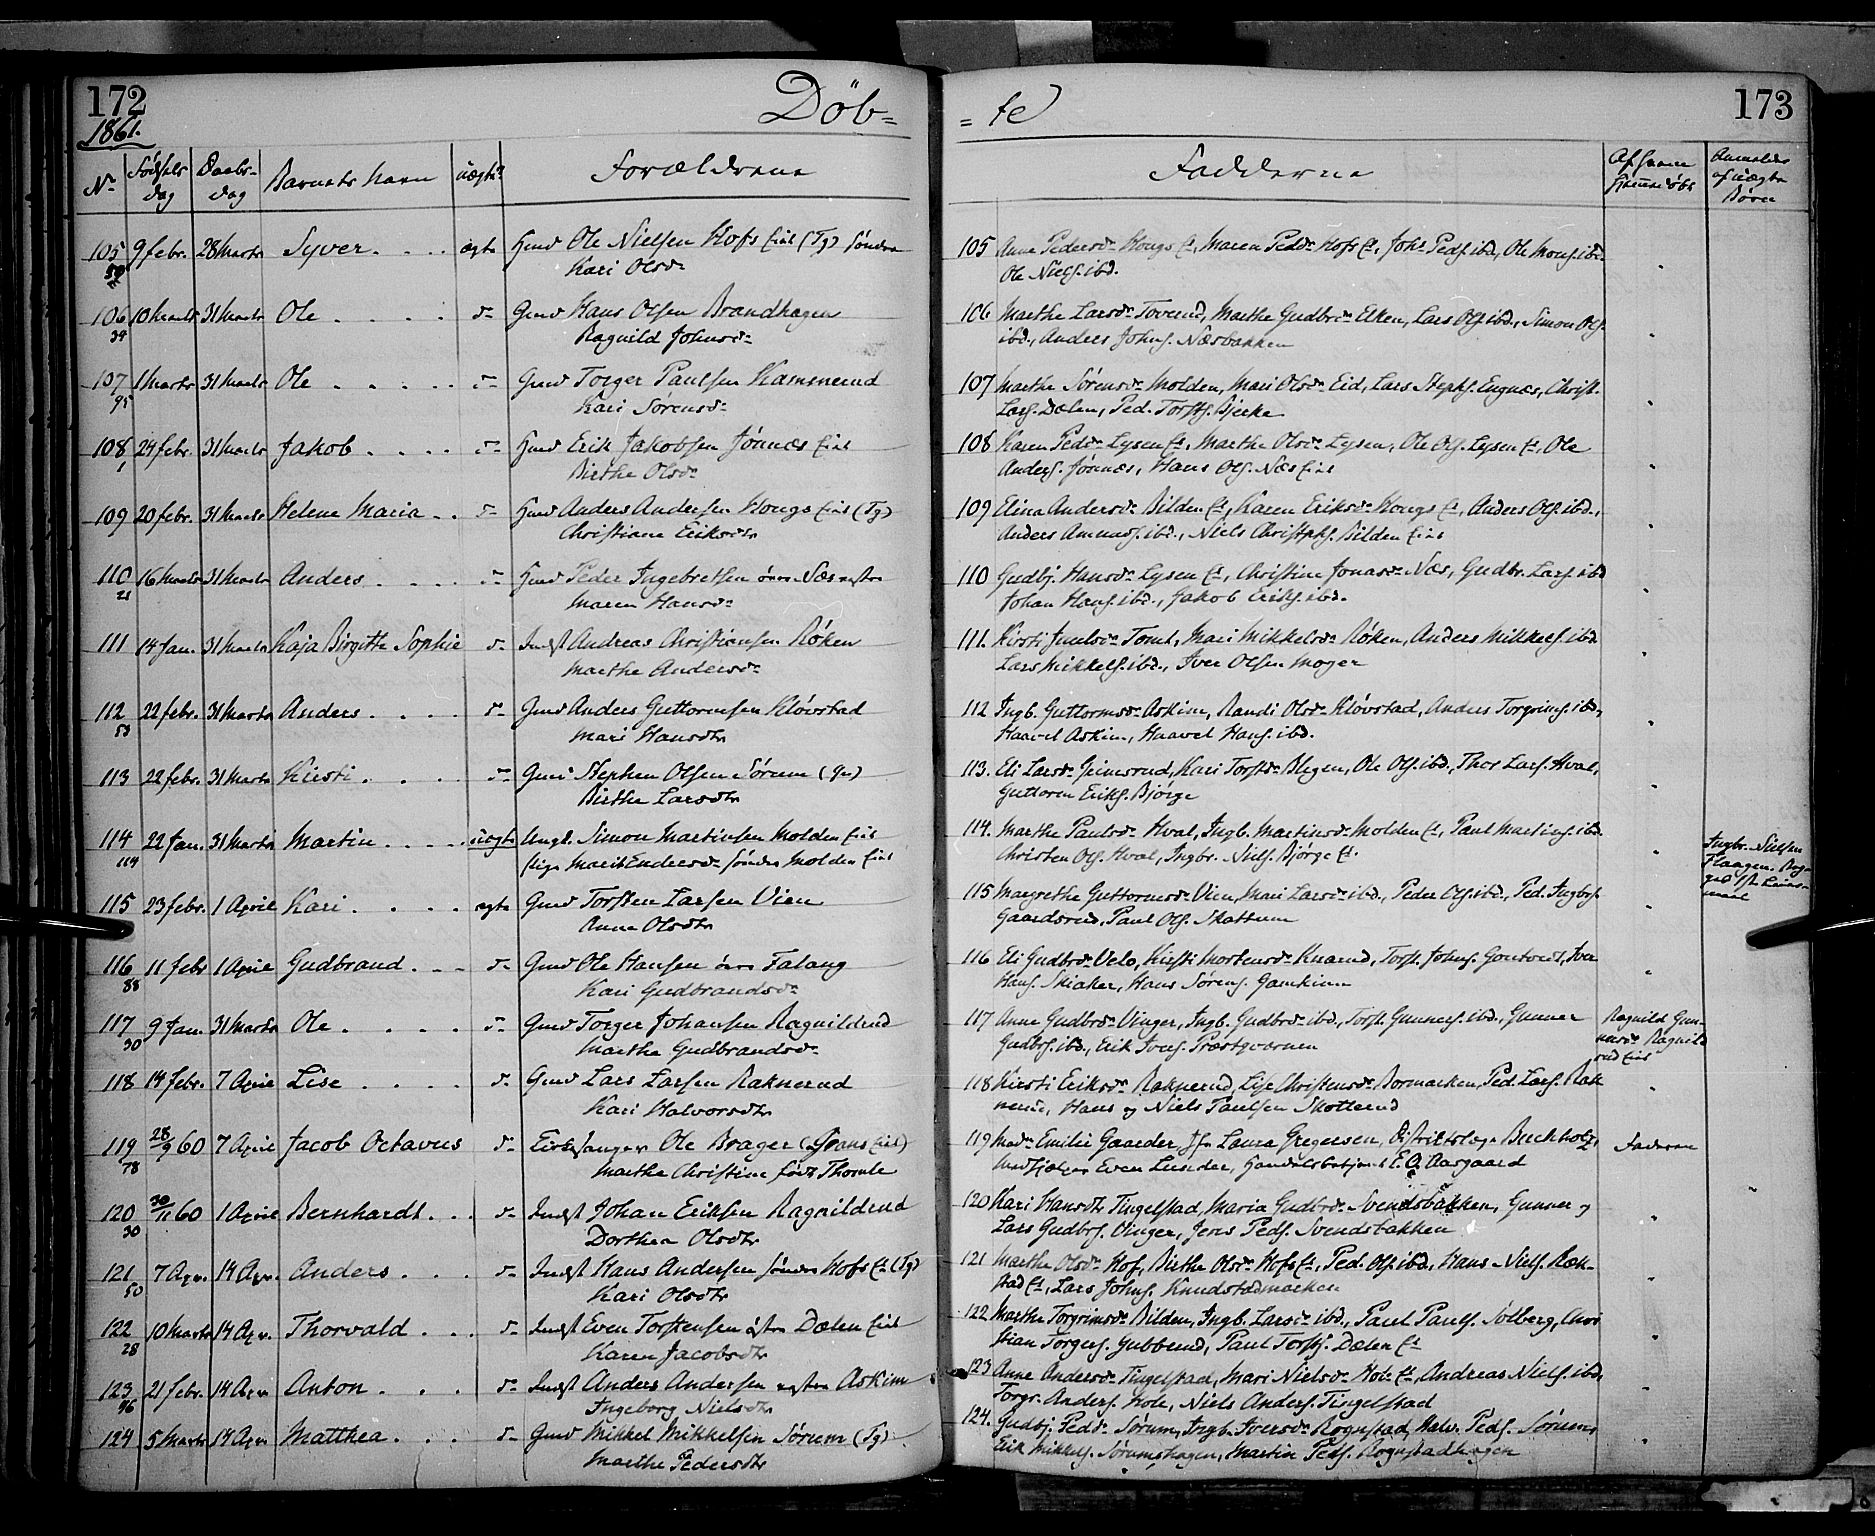 172
1861.
Döb-
Nr
Fødsels dag
Daabs- dag
Barnets Navn
uægte
Forældrene
105 9 febr. 28 Marts Syver. ægte Gmd Ole Nielsen Hofs (Tg) Søndre
Kari Olsdr
106 10 Marts 31 Marts Ole Gmd Hans Olsen Brandhagen
34 Ragnild Johnsdr
107 1 Marts 31 Marts Ole Gmd Torger Paulsen
95 Kari Sørensdr
108 24 febr. 31 Marts Jakob Hmd Erik Jakobsen Jønnæs
1 Birthe Olsdr
109 20 febr. 31 Marts Helene Maria Hmd Anders Andersen Hongs (Tg)
Christiane Eriksdtr
110 16 Marts 31 Marts Anders Hmd Peder Ingebretsen Næs
21 Maren Hansdr
111 14 Jan. 31 Marts Kaja Birgitte Sophie Indst Andreas Christiansen Røken
Marthe Andersdr
112 22 febr. 31 Marts Anders Gmd Anders Guttormsen Kløvstad
53 Mari Hansdtr
113 22 febr. 31 Marts Kirsti Gmd Stephen Olsen Sørum (Gr)
Birthe Larsdtr
114 22 Jan. 31 Marts Martin uægte Ungk. Simon Martinsen Molden
114 Pige Marit Endersdr Søndre Molden
115 23 febr. 1 April Kari ægte Gmd Torsten Larsen Vien
Anne Olsdtr
116 11 febr 1 April Gudbrand Gmd Ole Hansen Falang
88 Kari Gudbrandsdr
117 9 Jan. 31 Marts Ole Gmd Torger Johansen Ragnildrud
30 Marthe Gudbrandsdr
118 14 febr. 7 April Lise Gmd Lars Larsen Raknerud
Kari Halvorsdtr
119 28/9 60 7 April Jacob Octavus Kirkesanger Ole Brager (Grans)
78 Marthe Christine født Thomle
120 30/11 60 1 April Bernhardt Indst Johan Eriksen Ragnildrud
30 Dorthea Olsdtr
121 7 Apr. 14 Apr. Anders Indst Hans Andersen Søndre Hofs (Tg)
50 Kari Olsdtr
122 10 Marts 14 Apr. Thorvald Indst Even Torstensen østre Dælen
28 Karen Jacobsdtr
123 21 febr. 14 Apr Anton Indst Anders Andersen Askim
46 Ingeborg Nielsdtr
124 5 Marts 14 Apr Matthea Gmd Mikkel Mikkelsen Sørum (Tg)
Marthe Pedersdtr
173
= te
Fadderne
Af hvem hjemmedøbt
Anmeldte af uægte Børn
105 Anne Pedersdr Hongs, Maren Pedsdr Hofs, Johs Peds. ibd, Ole Mons. ibd.
Ole Niels. ibd.
106 Marthe Larsdr Toverud, Marthe Gudbrdr Elken, Lars Ols. ibd., Simon Ols.
ibd., Anders Johns. Næsbakken
107 Marthe Sørensdr Molden, Mari Olsdr Eid, Lars Stephs. Engnæs, Christ.
Lars. Dælen, Ped. Torsts. Bjerke
108 Karen Pedsdr Lysen, Marthe Olsdr Lysen, Ole Ols. Lysen, Ole
Anders. Jønnæs, Hans Ols. Næs
109 Elina Andersdr Bilden, Karen Eriksdr Hongs, Anders Ols. ibd.,
Anders Amunds. ibd., Niels Christphs. Bilden
110 Gudbj. Hansdr Lysen, Christine Jonasdr Næs, Gudbr. Lars. ibd
Johan Hans. ibd., Jakob Eriks. ibd.
111. Kirsti Juulsdr Tomt, Mari Mikkelsdr Røken, Anders Mikkels. ibd.
Lars Mikkels. ibd., Iver Olsen Moger
112 Ingb. Guttormsdr Askim, Randi Olsdr Kløvstad, Anders Torgrims. ibd,
Haavel Askim, Haavel Hans. ibd.
113. Eli Larsdr Grimsrud, Kari Torstsdr Blegen, Ole Ols. ibd., Thor Lars. Hval,
Guttorm Eriks. Bjørge
114. Marthe Paulsdr Hval, Ingb. Martinsdr Molden, Paul Martins. ibd.
Christen Ols. Hval, Ingbr. Niels. Bjørge
Ingbr. Nielsen
115 Margrethe Guttormsdr Vien, Mari Larsdr ibd., Peder Ols. ibd., Ped. Ingbrs.
Gaardsrud, Paul Ols. Skattum
116 Eli Gudbrdr Velo, Kirsti Mortensdr Knarud, Torst. Johns. Gontvedt, Iver
Hans. Skiaker, Hans Sørens. Gamkinn
117 Anne Gudbrdr Vinger, Ingb. Gudbrdr ibd., Torst. Gunners. ibd., Gunner
Gudbrs. ibd., Erik Ivers. Præstqværnen
Ragnild Gun-
nersdr Ragnild
rud
118 Kirsti Eriksdr Raknerud, Lise Christensdr Dormarken, Ped. Lars. Rak
nerud, Hans og Niels Paulsen Skotterud
119 Mad. Emilie Gaarder, Jfr Laura Gregersen, Distriktslæge Buchholz,
Even Lunder, Handelsbetjent E. O. Aasgaard
Faderen
120 Kari Hansdtr Tingelstad, Maria Gudbrdr Svendsbakken, Gunner og
Lars Gudbrs. Vinger, Jens Peds. Svendsbakken
121 Marthe Olsdr Hof, Birthe Olsdr Hofs, Ped. Ols. ibd, Hans Niels. Ræk-
stad, Lars Johns. Knudstadmarken
122 Marthe Torgrimsdr Bilden, Ingb. Larsdr ibd., Paul Pauls. Sølberg, Chri
stian Torgers. Gubberud, Paul Torsts. Dælen
123 Anne Andersdr Tingelstad, Mari Nielsdr Hole, Andreas Niels. ibd.,
Torgr. Anders. Hole, Niels Anders. Tingelstad
124. Gudbj. Pedsdr Sørum, Ingb. Iversdr Rognstad, Halv. Peds. Sørum,
Erik Mikkels. Sørumshagen, Martin Peds. Rognstadhagen